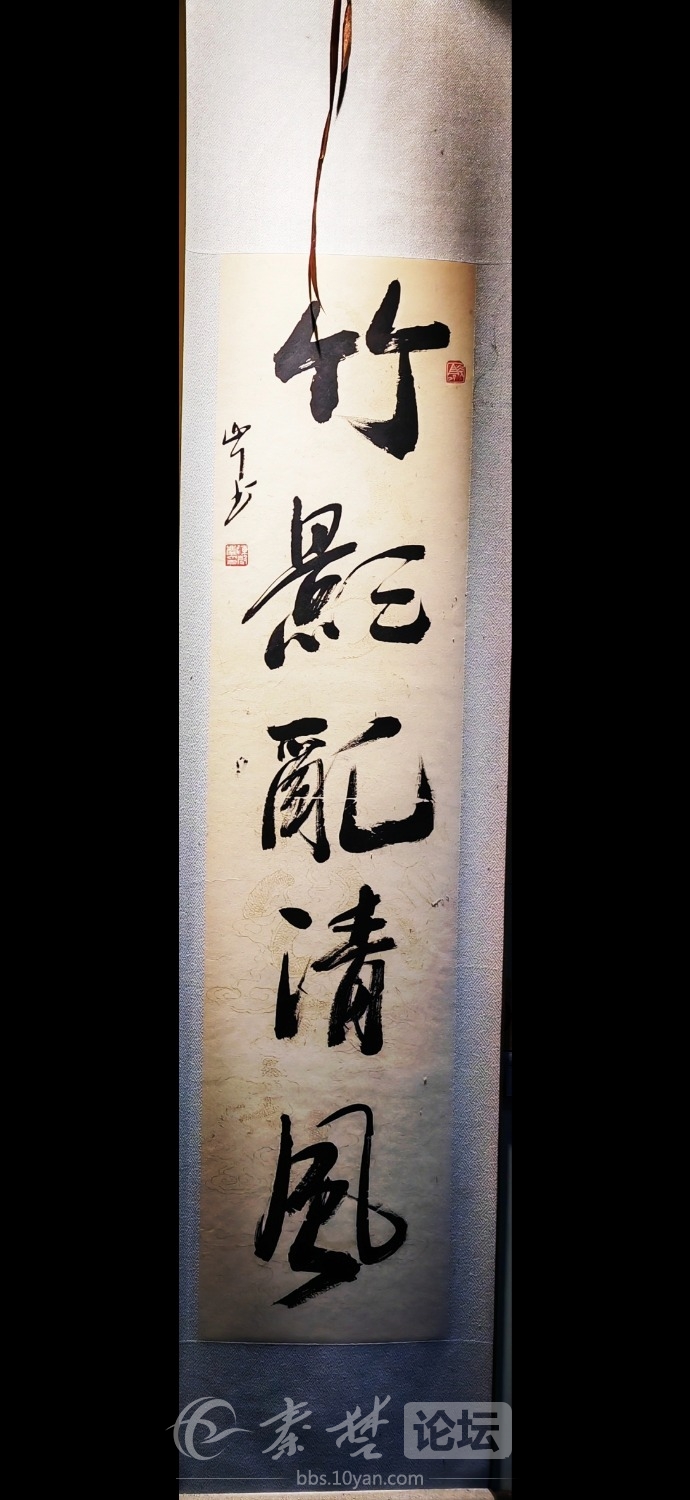 竹影亂清風
秦楚论坛
bbs.10yan.com